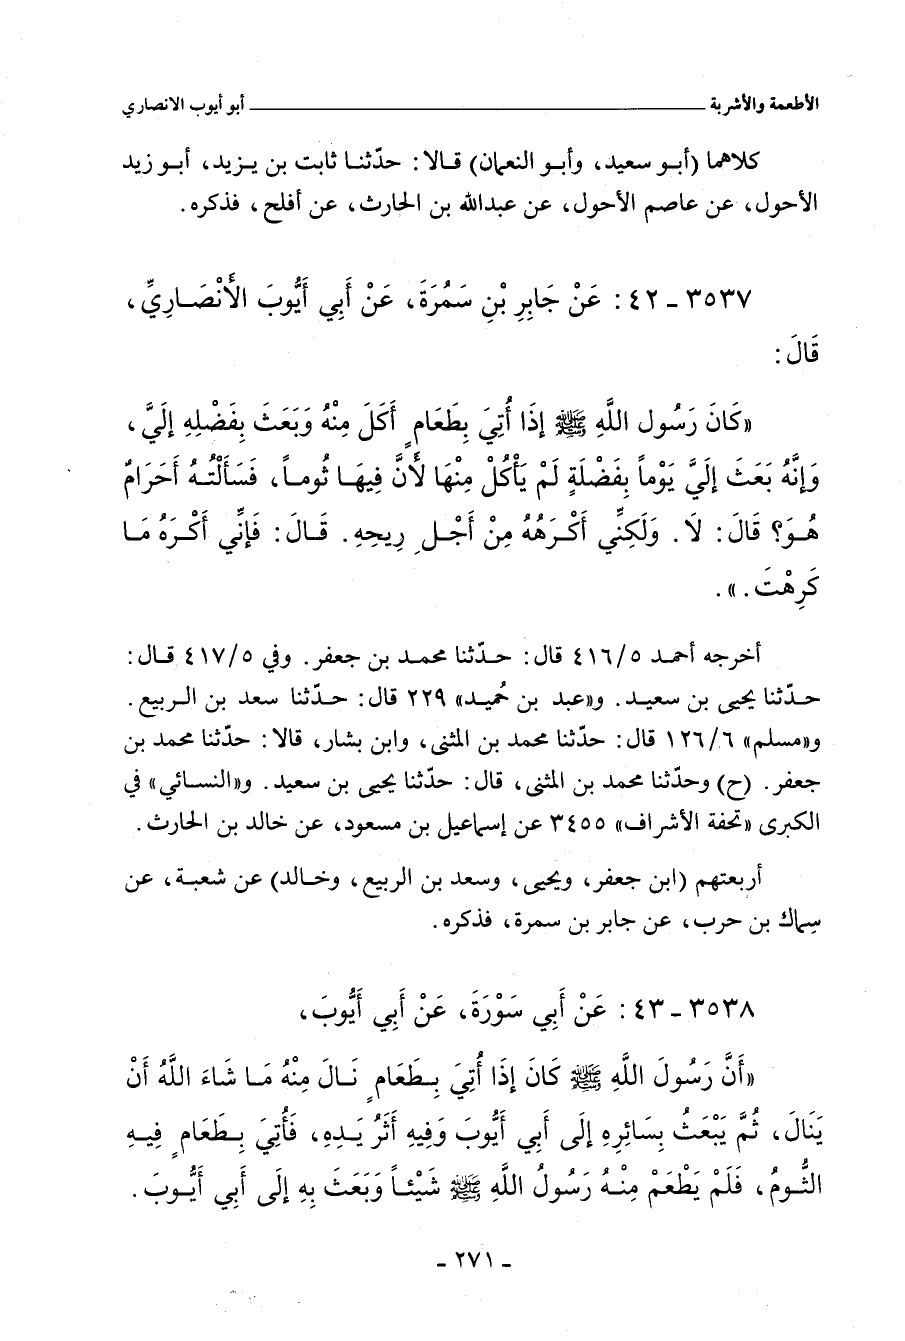 الأطعمة والأشربة ــــــــــــــــــــ أبو أيوب الانصاري
كلاهما (أبو سعيد، وأبو النعمان) قالا: حدّثنا ثابت بن يزيد، أبو زيد
الأحول، عن عاصم الأحول، عن عبدالله بن الحارث، عن أفلح، فذكره.
٣٥٣٧ - ٤٢: عَنْ جَابِرِ بْنِ سَمُرَةَ، عَنْ أَبِي أَيُّوبَ الأَنْصَارِيِّ،
قَالَ:
«كَانَ رَسُول اللَّهِ ﷺ إِذَا أُتِيَ بِطَعَامٍ أَكَلَ مِنْهُ وَبَعَثَ بِفَضْلِهِ إِلَيَّ،
وَإِنَّهُ بَعَثَ إِلَيَّ يَوْماً بِفَضْلَةٍ لَمْ يَأْكُلْ مِنْهَا لأَنَّ فِيهَا ثُوماً، فَسَأَلْتُهُ أَحَرَامٌ
هُوَ؟ قَالَ: لَا. وَلَكِنِّي أَكْرَهُهُ مِنْ أَجْلِ رِيحِهِ. قَالَ: فَإِنِّي أَكْرَهُ مَا
كَرِهْتَ.».
أخرجه أحمد ٤١٦/٥ قال: حدّثنا محمد بن جعفر. وفي ٤١٧/٥ قال:
حدّثنا يحيى بن سعيد. و«عبد بن حُميد» ٢٢٩ قال: حدّثنا سعد بن الربيع.
و«مسلم» ١٢٦/٦ قال: حدّثنا محمد بن المثنى، وابن بشار، قالا: حدّثنا محمد بن
جعفر. (ح) وحدّثنا محمد بن المثنى، قال: حدّثنا يحيى بن سعيد. و«النسائي» في
الكبرى «تحفة الأشراف» ٣٤٥٥ عن إسماعيل بن مسعود، عن خالد بن الحارث.
أربعتهم (ابن جعفر، ويحيى، وسعد بن الربيع، وخالد) عن شعبة، عن
سِماك بن حرب، عن جابر بن سمرة، فذكره.
٣٥٣٨ - ٤٣: عَنْ أَبِي سَوْرَةَ، عَنْ أَبِي أَيُّوبَ،
«أَنَّ رَسُولَ اللَّهِ ﷺ كَانَ إِذَا أُتِيَ بِطَعَامٍ نَالَ مِنْهُ مَا شَاءَ اللَّهُ أَنْ
يَنَالَ، ثُمَّ يَبْعَثُ بِسَائِرِهِ إِلَى أَبِي أَيُّوبَ وَفِيهِ أَثَرُ يَدِهِ، فَأُتِيَ بِطَعَامٍ فِيهِ
الثُّومُ، فَلَمْ يَطْعَمْ مِنْهُ رَسُولُ اللَّهِ ﷺ شَيْئاً وَبَعَثَ بِهِ إِلَى أَبِي أَيُّوبَ.
- ٢٧١ -